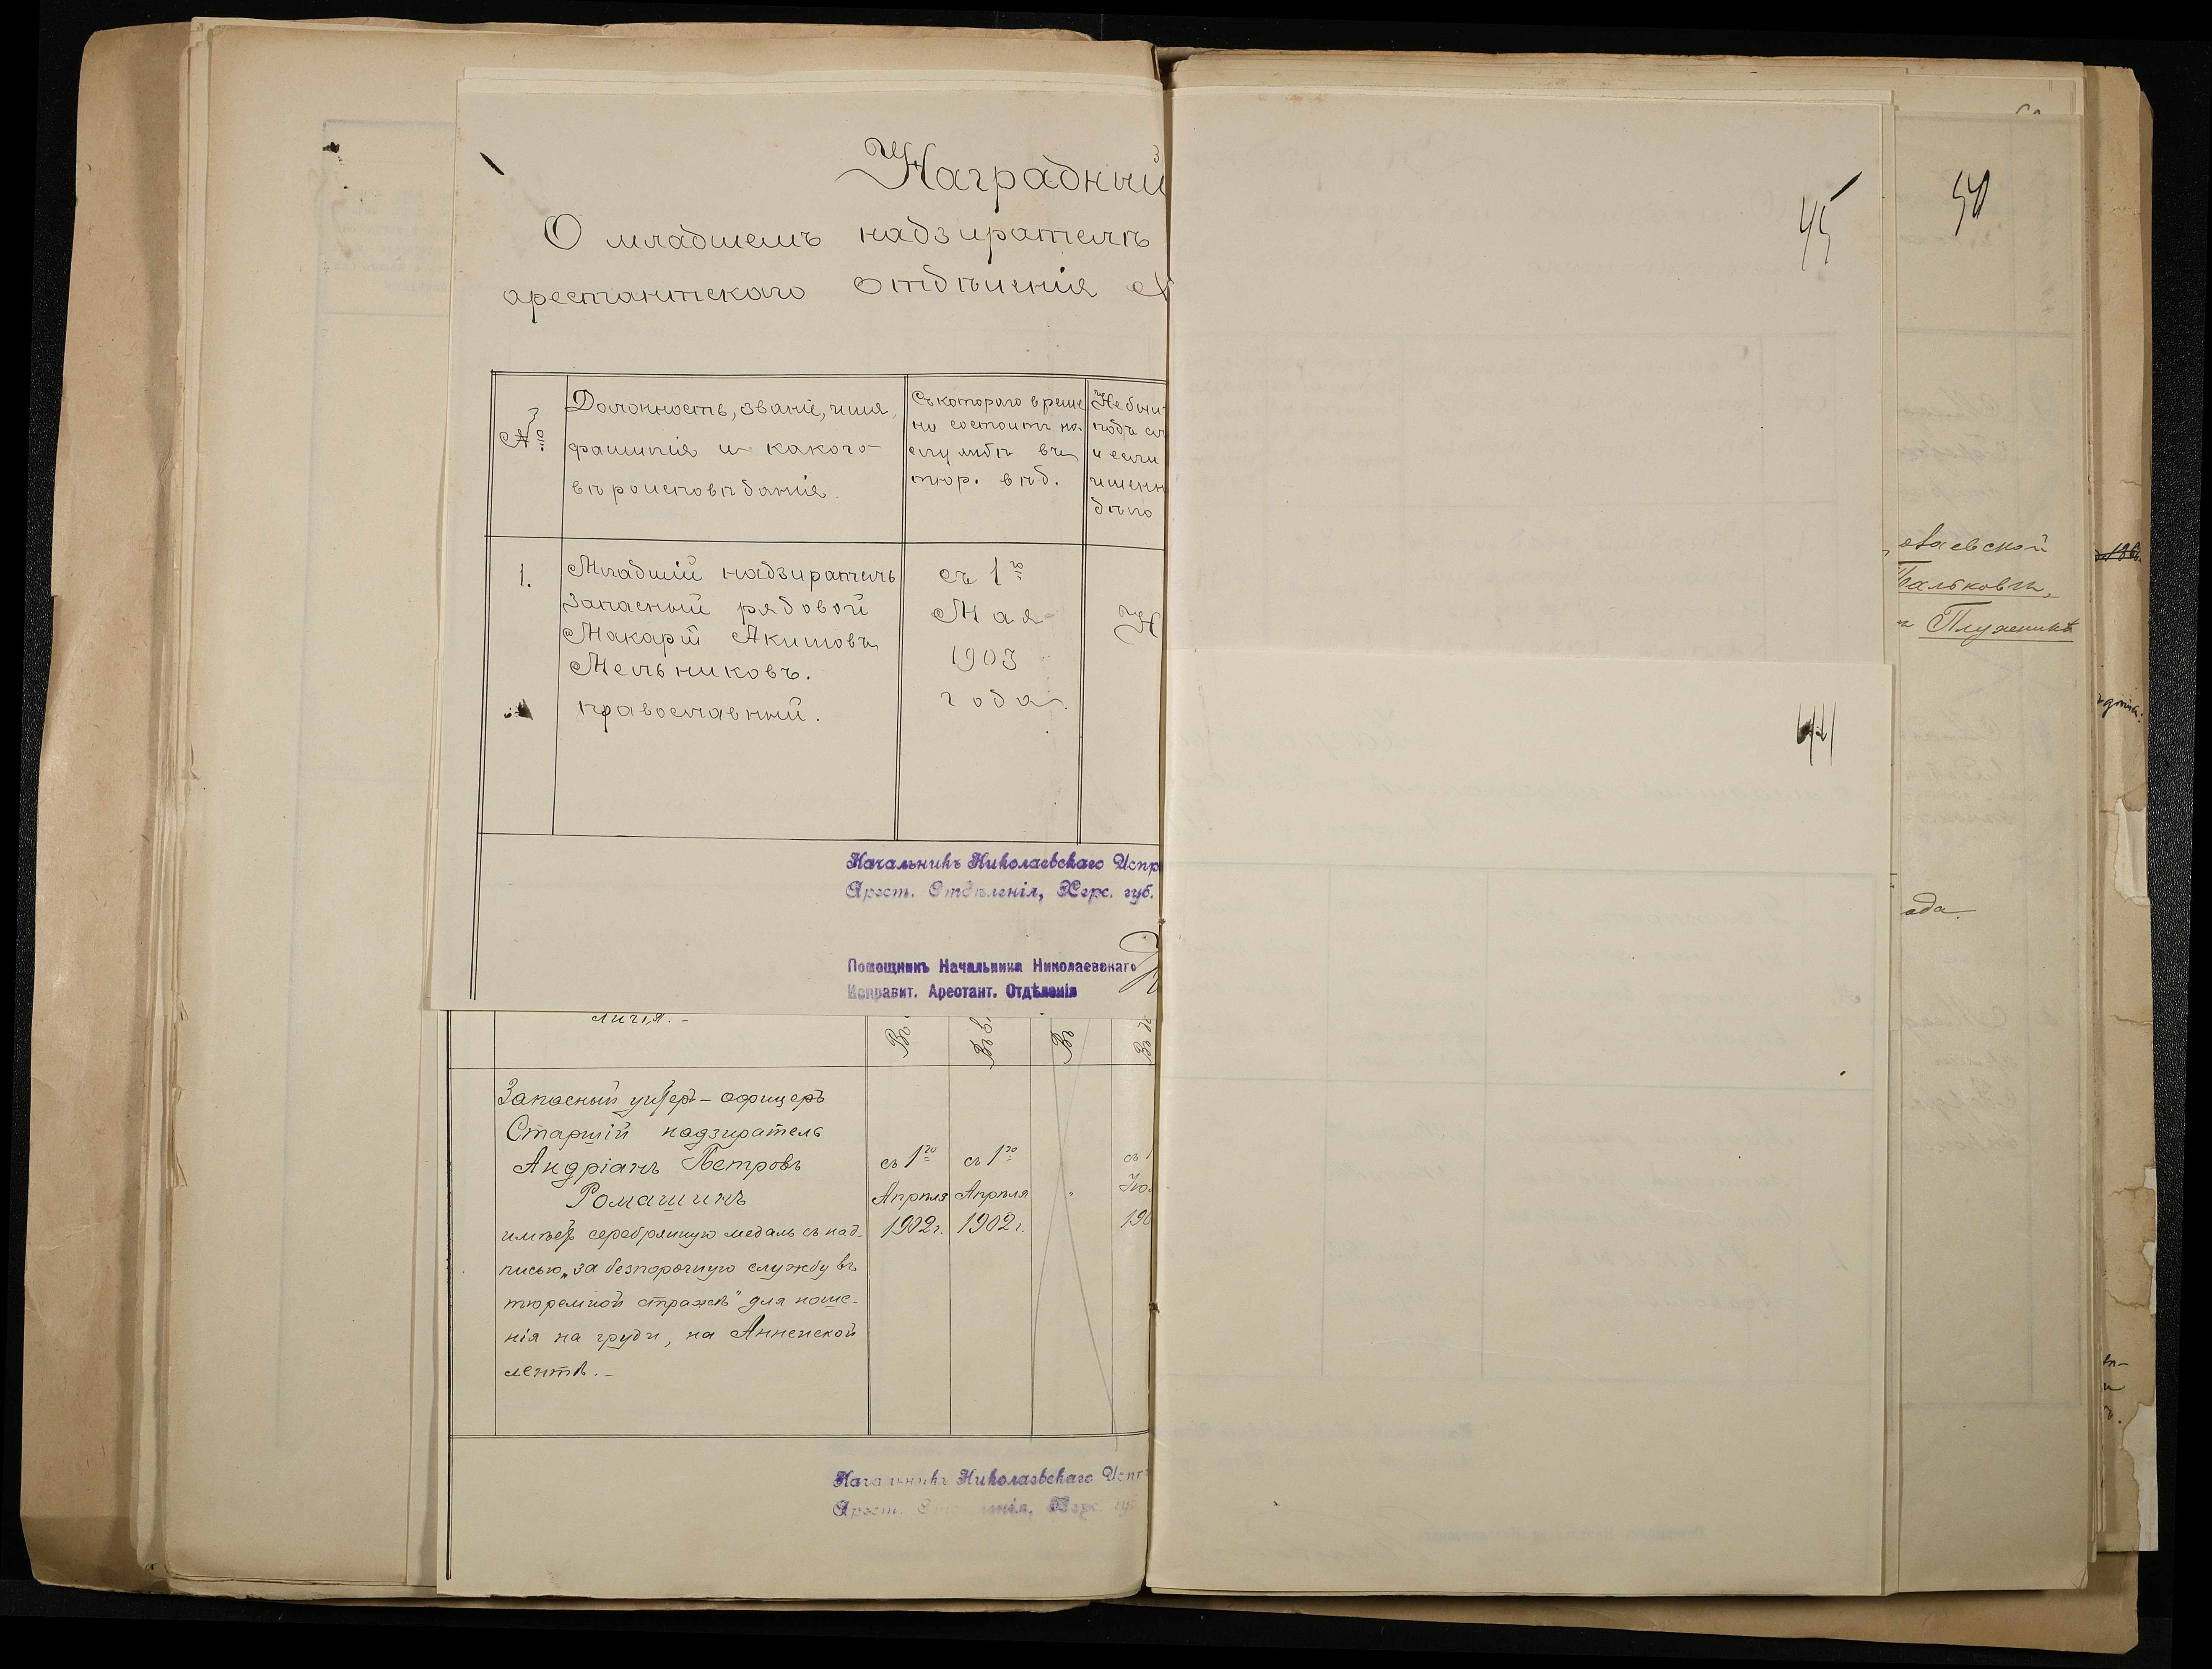 Наградный
О младшемъ надзирателѣ
арестантскаго отдѣленія
№
Должность, званіе, имя,
фамилія и какого
вѣроисповѣданія.
Съ котораго време
ни состоитъ на
службѣ въ
тюр. вѣд.
Не был
подъ
и если
было
1.
Младшій надзиратель
Запасный рядовой
Макарій Акимовъ
Мельниковъ.
православный.
съ 1го
Мая
1903
года.
Н
Начальникъ Николаевскаго Испр
Арест. Отдѣленія, Херс. губ.
Помощникъ Начальника Николаевскаго
Исправит. Арестант. Отдѣленія
личія.-
Въ
Въ
Въ
Въ
Запасный унтеръ-офицеръ
Старшій надзиратель
Андріанъ Петровъ
Ромашинъ
имѣетъ серебряную медаль съ над-
писью „за безпорочную службу въ
тюремной стражѣ" для ноше-
нія на груди, на Аннинской
лентѣ.-
съ 1го
Апрѣля
1902г.
съ 1го
Апрѣля
1902г.
съ 1
190
Начальникъ Николаевскаго Испр
Арест. Отдѣленія, Херс. губ
45
44
50
Плужникъ
ода.